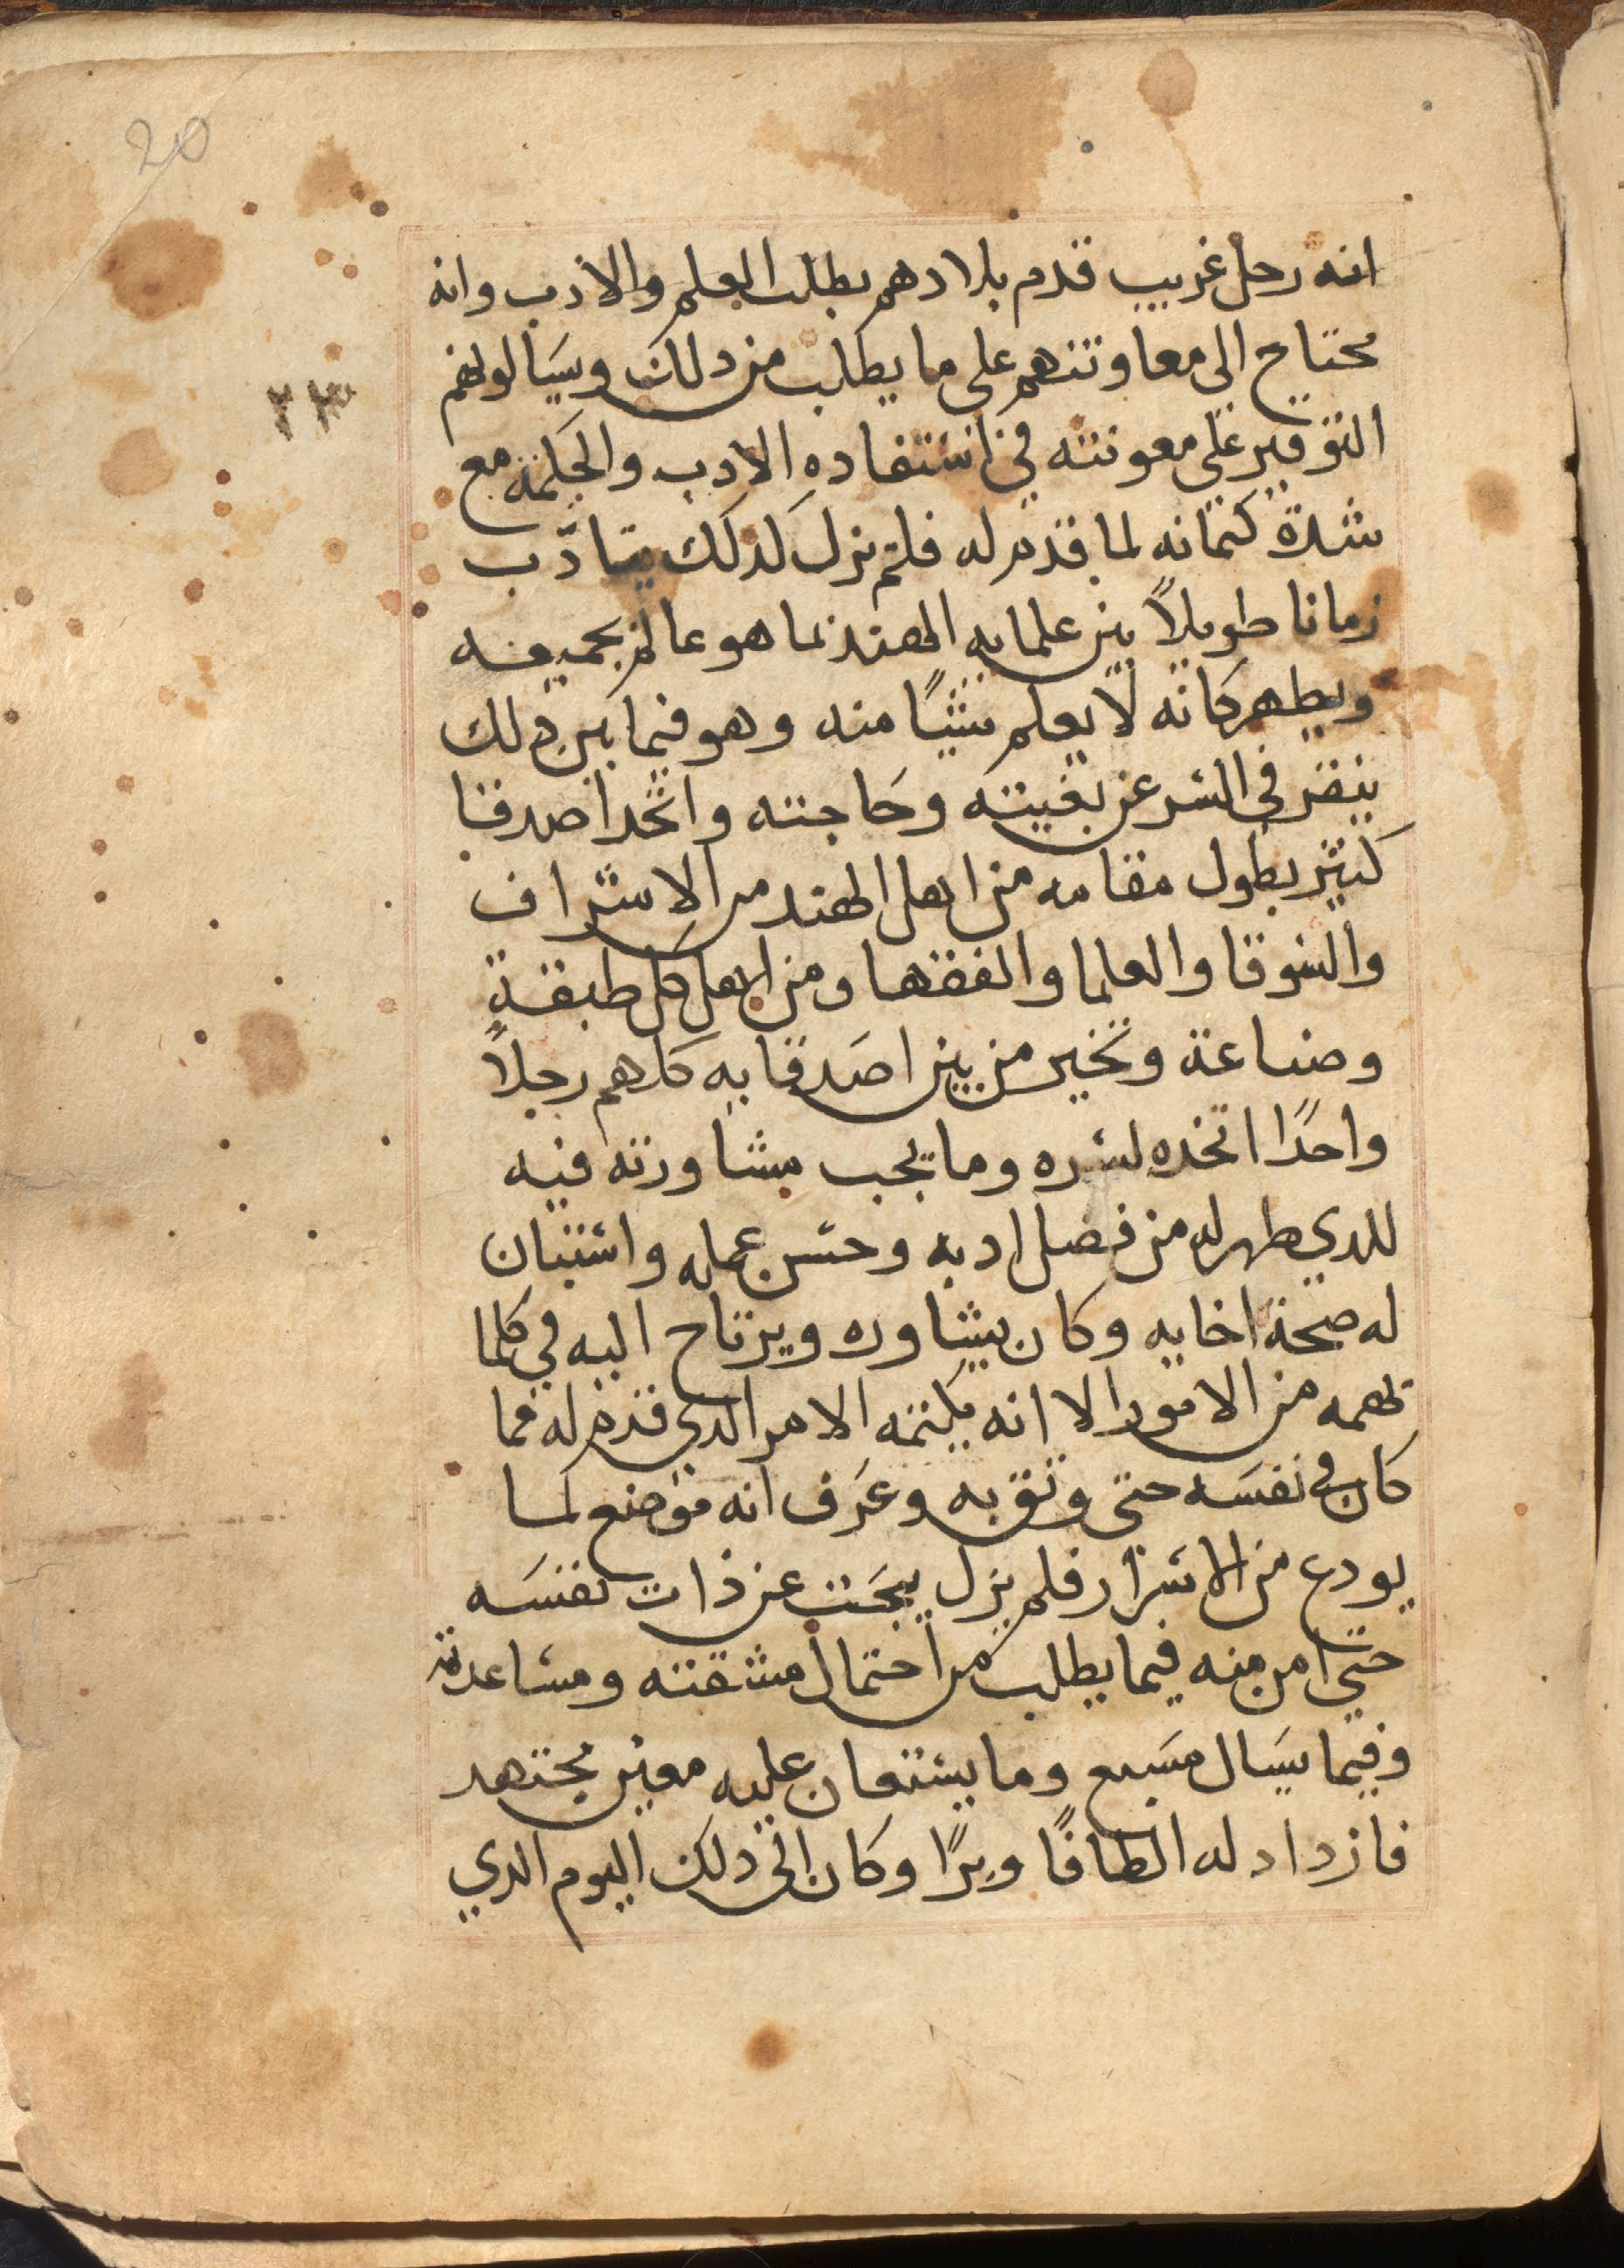 20
انه رجل غريب قدم بلادهم بطلب العلم والادب وانه
محتاج الى معاونتهم على ما يطلب من ذلك ويسالولهم
٢٣
التوفير على معونته في استفاده الادب والحكمة مع
شدة كتمانه لما قدم له فلم يزل كذلك يتادب
زمانا طويلاً بين علمايه الهند بما هو عالم بجميعه
ويطهر كانه لا يعلم شيًا منه وهو فيما بين ذلك
ينقر في السر عن بغيته وحاجته واتخد اصدقا
كثير بطول مقامه من اهل الهند من الاشراف
والسوقا والعلما والفقها ومن اهل كل طبقة
وصناعة وتخير من بين اصدقايه كلهم رجلاً
واحدًا اتخده لسره وما يجب مشاورته فيه
للدي طهر له من فضل ادبه وحسن عمله واستبان
له صحة اخايه وكان يشاوره ويرتاح اليه في كلما
تهمه من الامور الا انه يكتمه الامر الدي قدم له فما
كان في نفسه حتى وثق به وعرف انه موضع لما
يودع من الاسرار فلم يزل يبحث عن ذات نفسه
حتى امن منه فيما يطلب من احتمال مشقته ومساعدته
وفيما يسال وما يستعان عليه معين مجتهد
فازداد له الطافًا وبرًا وكان الى ذلك اليوم الدي